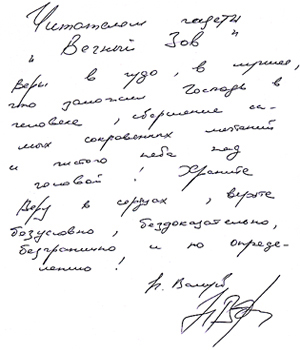 Читателям газеты
"Вечный Зов"
Веры в чудо, в лучшее,
что заложил Господь в
человеке, свершение са-
мых сокровенных мечтаний
и чистого неба над
головой! Храните
Веру в сердцах, верьте
безусловно, бездоказательно,
безгранично и по опреде-
лению!